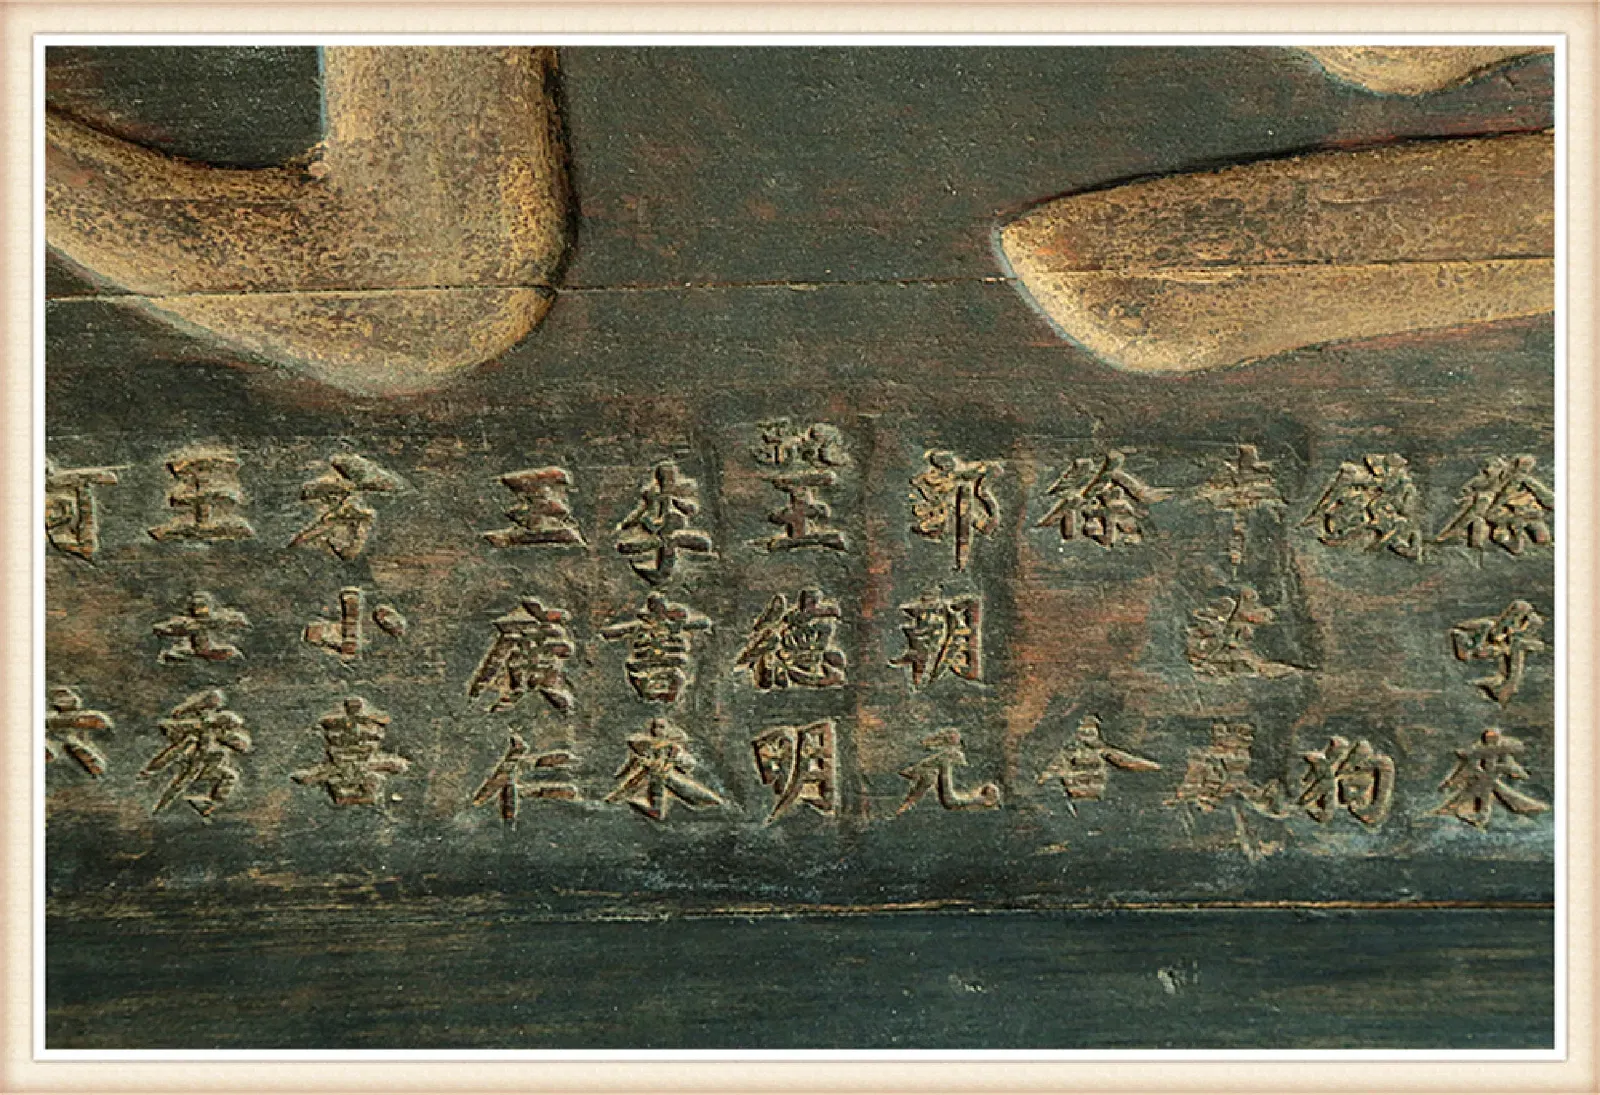 徐呼來
錢狗
徐合
郭朝元
王德明
李書來
王廣仁
方小喜
王士秀
何六